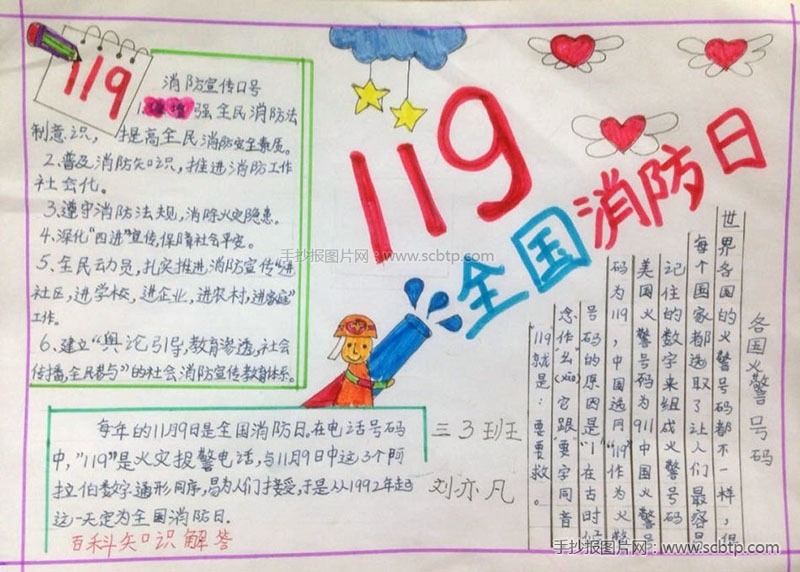 119
消防宣传口号
1.增强全民消防法
制意识，提高全民消防安全素质。
2、普及消防知识，推进消防工作
社会化。
3.遵守消防法规，消除火灾隐患。
4、深化"四进"宣传，保障社会平安。
5、全民动员，扎实推进消防宣传"进
社区，进学校，进企业，进农村，进家庭"
工作。
6、建立"舆论引导，教育渗透，社会
传播，全民参与"的社会消防宣传教育体系。
119
全国消防日
手抄报图片网：www.scbtp.com
各国火警号码
世界各国的火警号码都不一样，但
每个国家都选取了让人们最容易
记住的数字来组成火警号码
美国火警号码为911中国火警号
码为119，中国选网"119"作为火警
号码的原因是"1"在古时候
念作"幺"(yāo)它跟"要"字同音
"119就是：要要救。
每年的11月9日是全国消防日。在电话号码
中，"119"是火灾报警电话，与11月9日中这3个阿
拉伯数字形同序，易为人们接受，于是从1992年起
这一天定为全国消防日.
百科知识解答
三3班
刘亦凡
手抄报图片网：www.scbtp.com